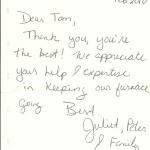 Dear Tom,
Thank you, you're
the best! We appreciate
your help & expertise
in keeping our furnace
going
Best
Juliet, Peter
& Family